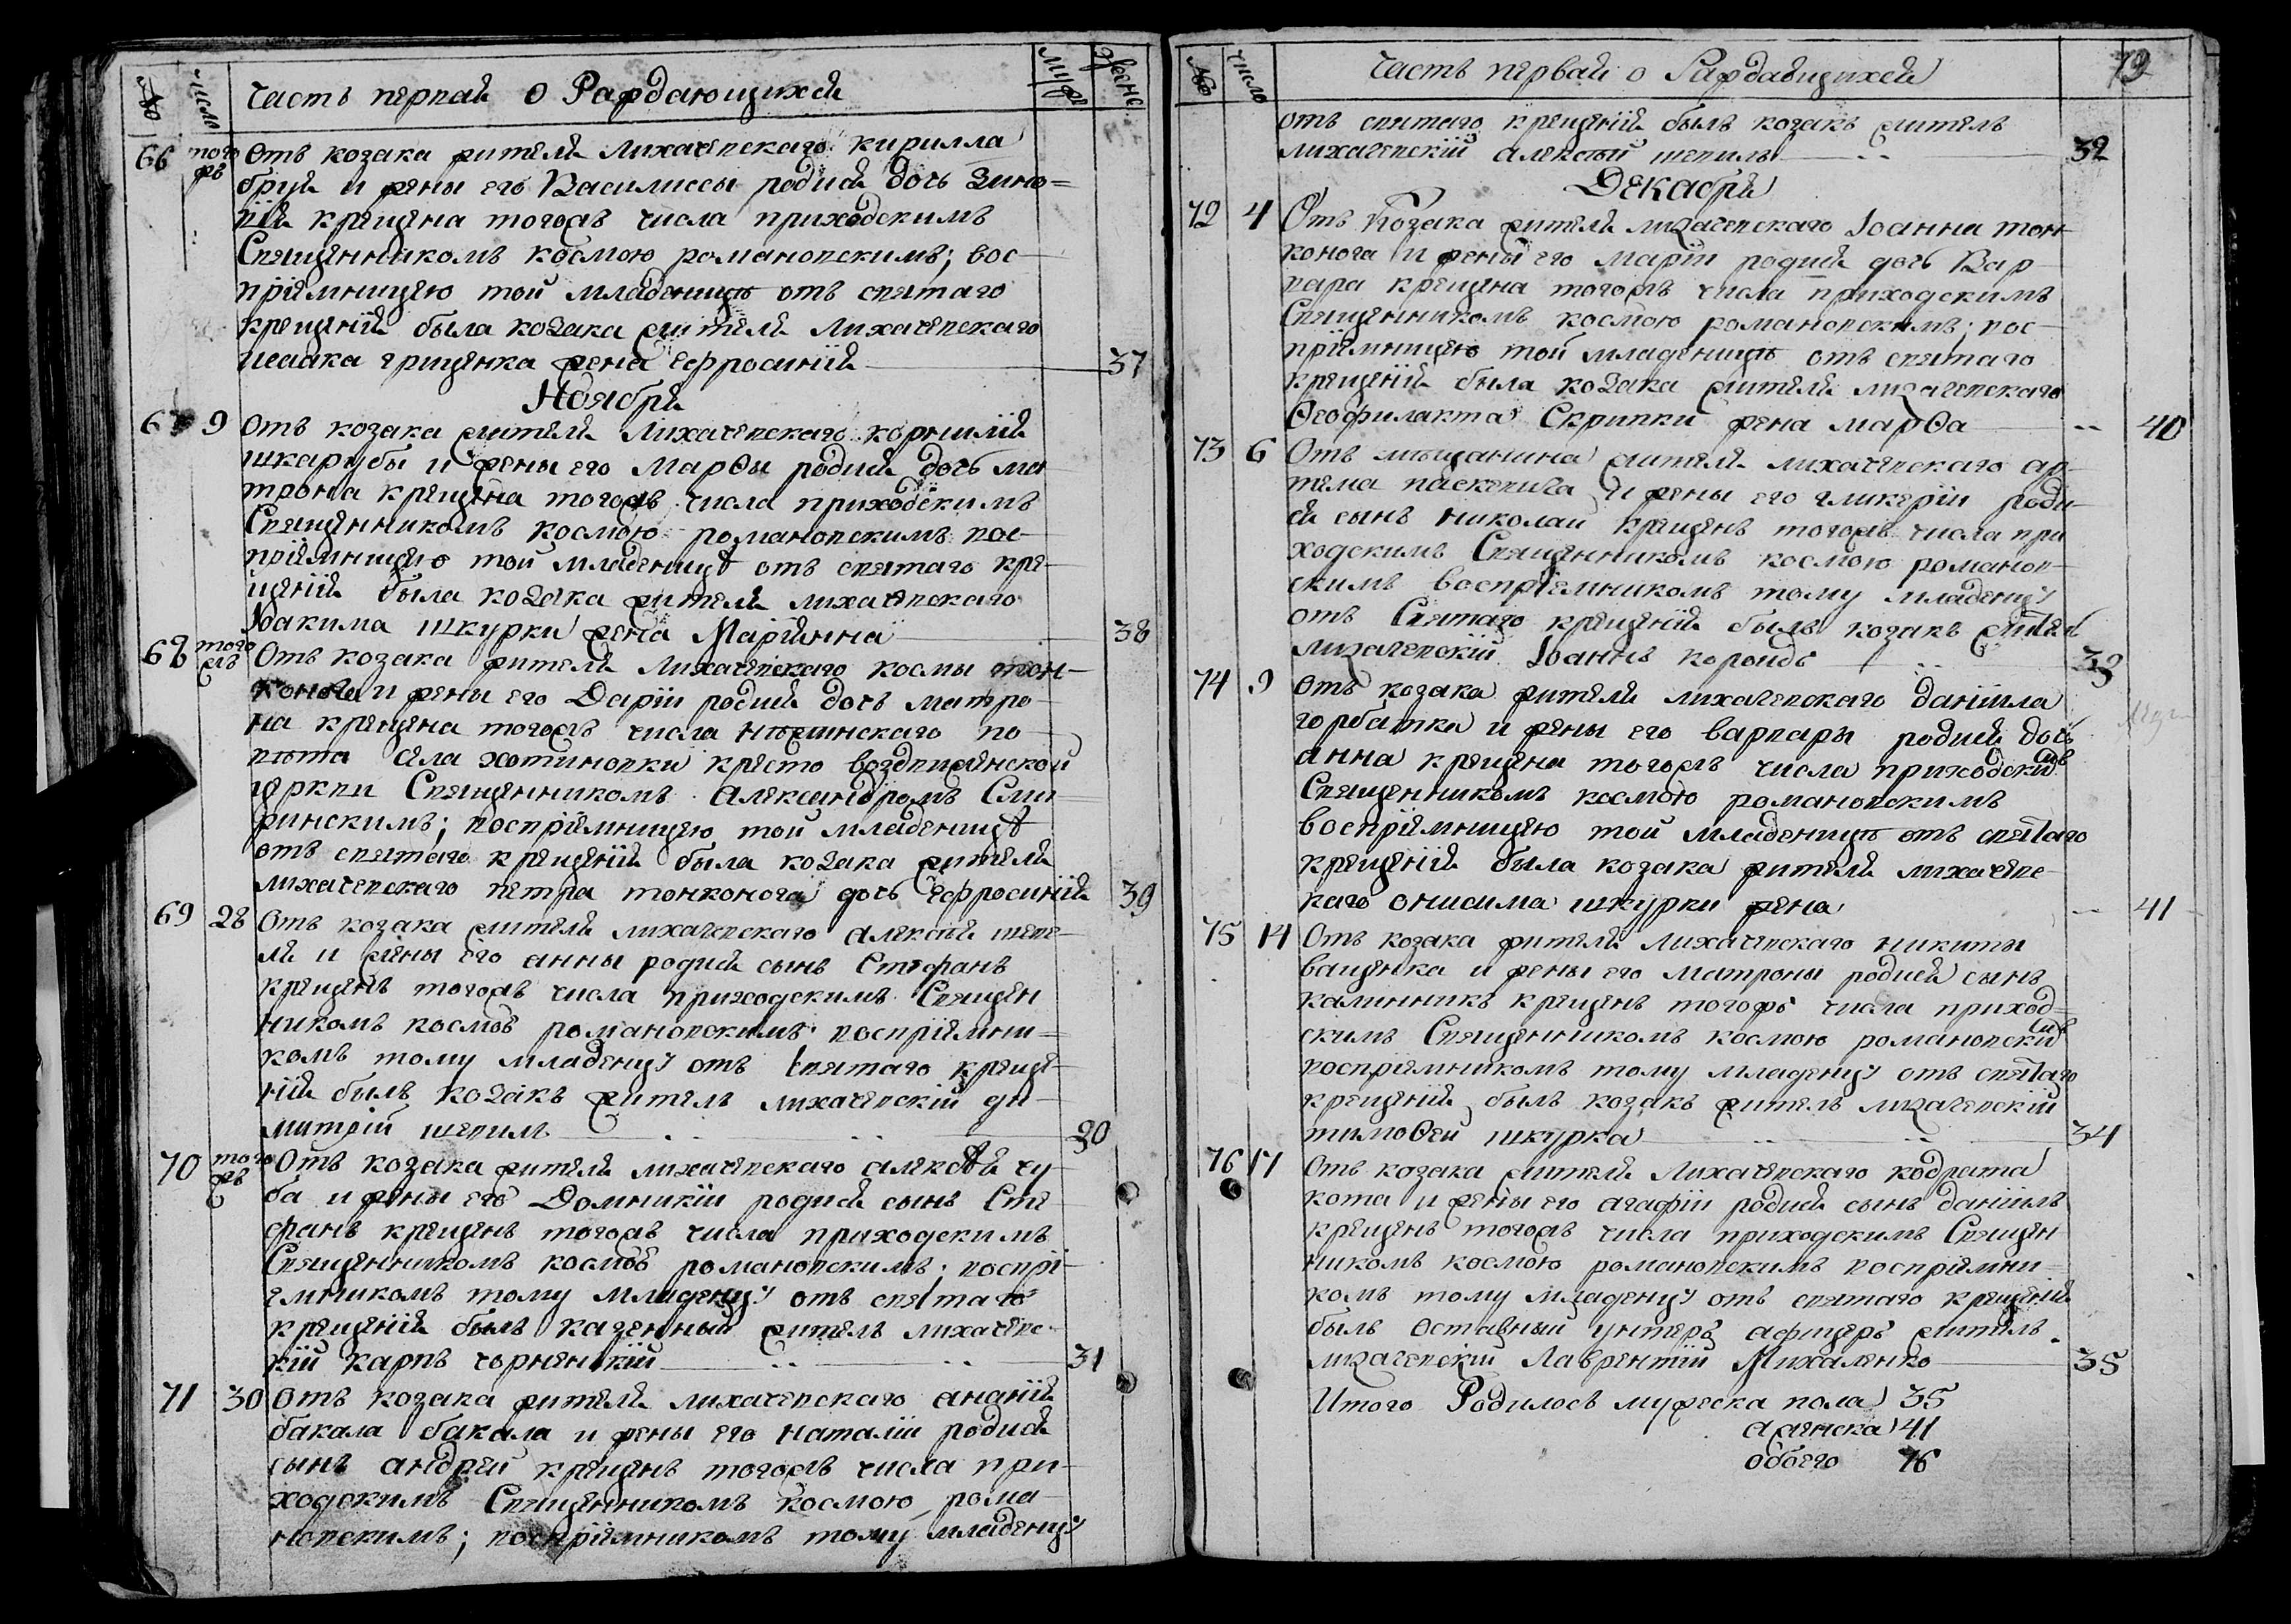 № число Часть перпая о Раждающихся муже женс
66 того жъ Отъ козака жителя Лихачевскаго Кирилла
бруя и жены его Василиссы родися дочь Зино=
вія крещена тогожъ числа приходскимъ
Священникомъ космою романовскимъ; вос-
пріемницею той младеницѣ отъ святаго
крещенія была козака жителя Лихачевскаго
исаака грищенка жена Ефросинія 37
Ноября
67 9 Отъ козака жителя Лихачевскаго корнилія
шкарубы и жены его Марѳы родися дочь ма
трона крещена тогожъ числа приходскимъ
Священникомъ космою романовскимъ вос-
пріемницею той младеницѣ отъ святаго кре-
щенія была козака жителя лихачевскаго
Іоакима шкурки жена Маріанна 38
68 того жъ Отъ козака жителя Лихачевскаго космы тон-
конога и жени его Даріи родися дочь матро-
на крещена тогожъ числа нѣжинскаго по-
вѣта села хотиновки кресто воздвиженской
церкви Священникомъ Александромъ Сли
ринскимъ; воспріемницею той младеницѣ
отъ святаго крещенія была козака жителя
лихачевскаго петра тонконога дочь Ефросинія 39
69 28 Отъ козака жителя лихачевскаго алексѣя шепе-
ля и жены его анны родися сынъ Стефанъ
крещенъ тогожъ числа приходскимъ Священ
никомъ космою романовскимъ воспріемни=
комъ тому младенцу отъ святаго креще-
нія былъ козакъ житель лихачевскій ди-
митрій шепиль 30
70 того жъ Отъ козака жителя лихачевскаго алексѣя чу
ба и жены его Домникіи родися сынъ Сте
фанъ крещенъ тогожъ числа приходскимъ
Священникомъ космою романовскимъ; воспрі-
емникомъ тому младенцу отъ святаго
крещенія былъ казенный житель лихачевс-
кій карпъ чорненкій 31
71 30 Отъ козака жителя лихачевскаго ананія
бакала бакала и жены его наталіи родися
сынъ андрей крещенъ тогожъ числа при-
ходскимъ Священникомъ космою рома-
новскимъ; воспріемникомъ тому младенцу
№ число Часть первая о Раждающихся 79
отъ святаго крещенія былъ козакъ житель
лихачевскій алексѣй шепиль 32
Декабря
72 4 Отъ Козака жителя лихачевскаго Іоанна тон-
конога и жены его маріи родися дочь Вар-
вара крещена тогожъ числа приходскимъ
Священникомъ космою романовскимъ; вос-
пріемницею той младеницѣ отъ святаго
крещенія была козака жителя лихачевскаго
Ѳеофилакта Скрипки жена марѳа 40
73 6 Отъ мѣщанина жителя лихачевскаго ар-
тема и жены его гликеріи роди-
ся сынъ николай крещенъ тогожъ числа при
ходскимъ Священникомъ космою романов-
скимъ воспріемникомъ тому младенцу
отъ Святаго крещенія былъ козакъ житель
лихачевскій Іоаннъ 33
74 9 Отъ козака жителя лихачевскаго даніила
горбатка и жены его варвары родися дочь
анна крещена тогожъ числа приходскимъ
Священникомъ космою романовскимъ
воспріемницею той младеницѣ отъ святаго
крещенія была козака жителя лихачевс-
каго онисима шкурки жена 41
75 14 Отъ козака жителя Лихачевскаго никиты
ващенка и жены его матроны родися сынъ
калинникъ крещенъ тогожъ числа приход-
скимъ Священникомъ космою романовскимъ
воспріемникомъ тому младенцу отъ святаго
крещенія былъ козакъ житель лихачевскій
тимоѳей шкурка 34
76 17 Отъ козака жителя Лихачевскаго кодрата
кота и жены его агафіи родися сынъ даніилъ
крещенъ тогожъ числа приходскимъ Священ
никомъ космою романовскимъ воспріемни=
комъ тому младенцу отъ святаго крещенія
былъ Оставный унтеръ афицеръ житель
лихачевскій Лаврентій Михаленко 35
Итого Родилось мужеска пола 35
а женска 41
обоего 76